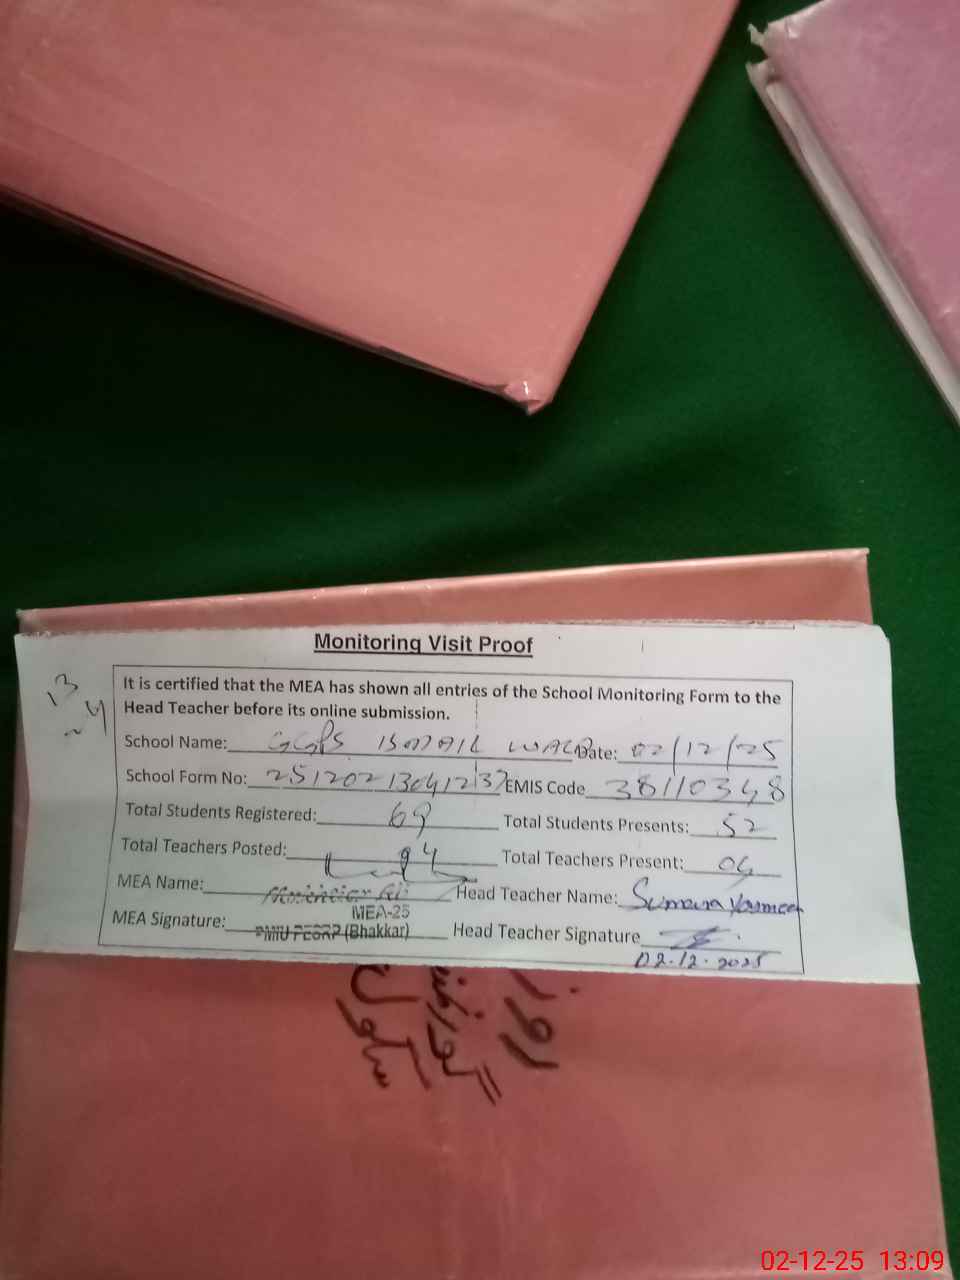 Monitoring Visit Proof
13
It is certified that the MEA has shown all entries of the School Monitoring Form to the
Head Teacher before its online submission.
School Name: GGPS Date: 02/12/25
School Form No: 2512021304123 EMIS Code 38110348
Total Students Registered: 69 Total Students Presents: 52
Total Teachers Posted: 04 Total Teachers Present: 04
MEA Name: Ali Head Teacher Name: Sumaira Yasmeen
MEA-25
MEA Signature: PMIU PESRP (Bhakkar) Head Teacher Signature
02.12.2025
02-12-25 13:09